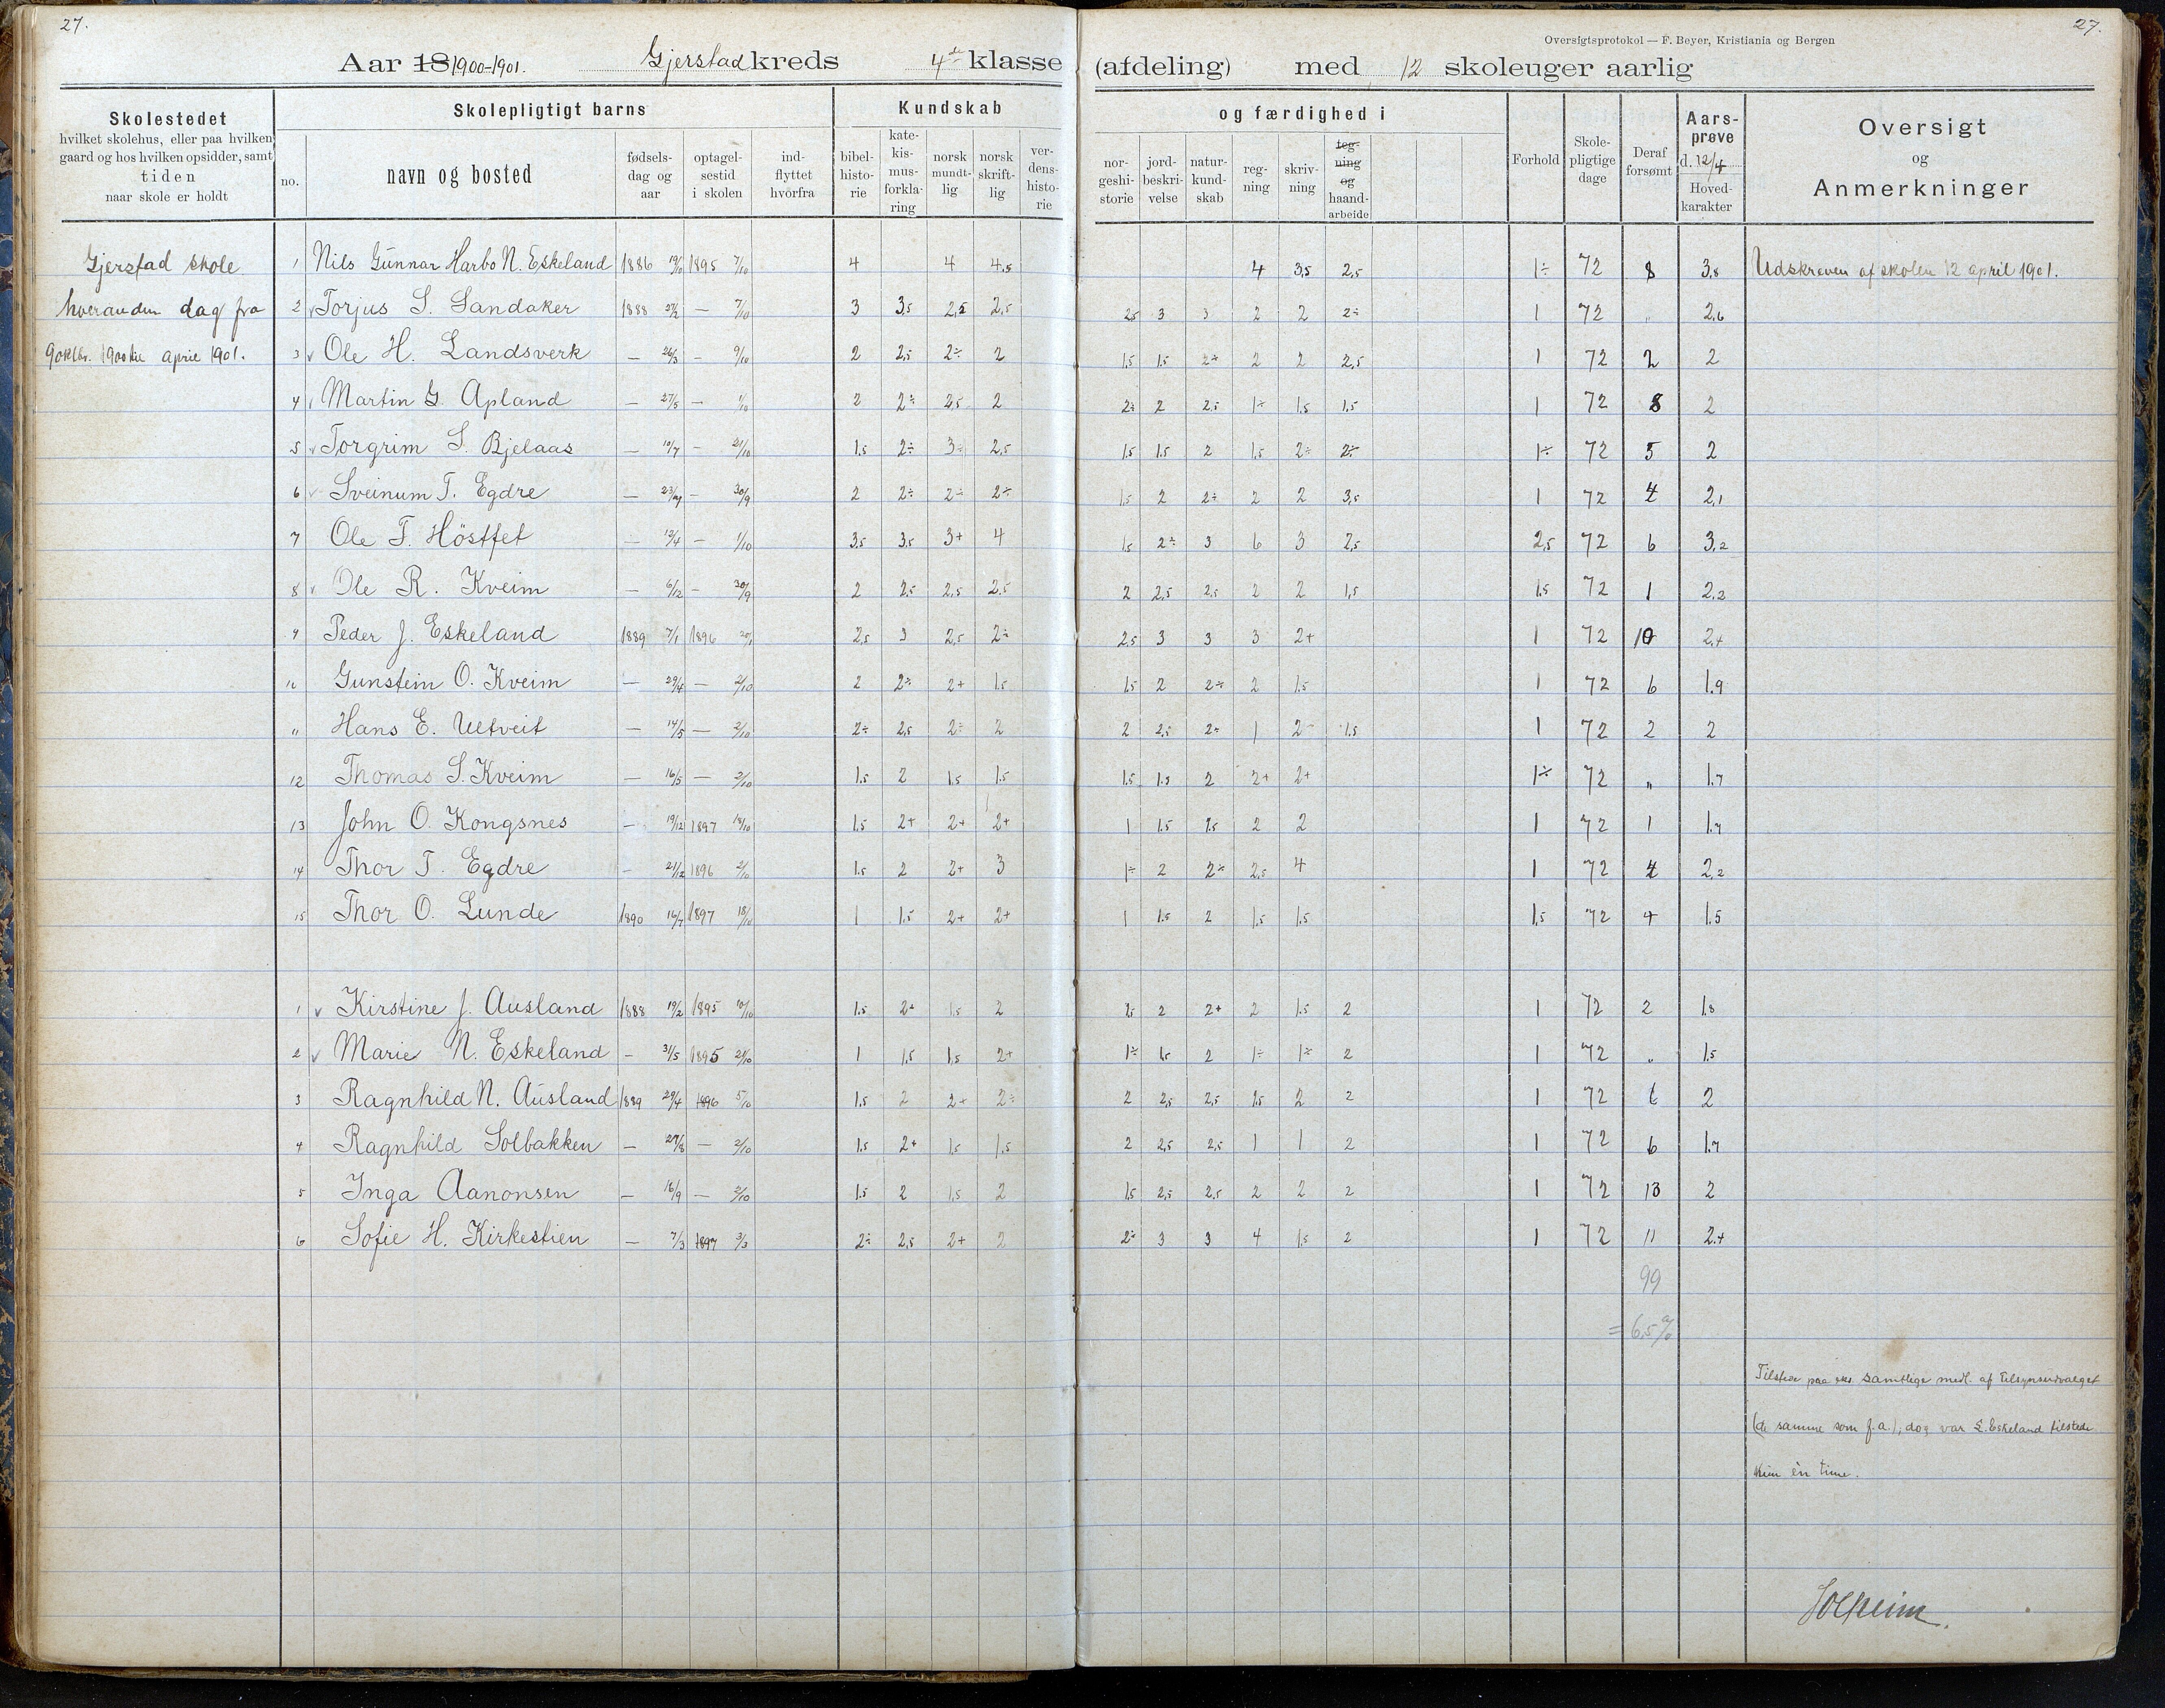 27.
27.
Oversigtsprotokol — F. Beyer, Kristiania og Bergen
Aar 18 1900-1901. Gjerstad kreds 4de klasse (afdeling) med 12 skoleuger aarlig
Skolestedet
hvilket skolehus, eller paa hvilken
gaard og hos hvilken opsidder, samt
tiden
naar skole er holdt
Skolepligtigt barns
no.
navn og bosted
fødsels-
dag og
aar
optagel-
sestid
i skolen
ind-
flyttet
hvorfra
Kundskab
bibel-
histo-
rie
kate-
kis-
mus-
forkla-
ring
norsk
mundt-
lig
norsk
skrift-
lig
ver-
dens-
histo-
rie
og færdighed i
nor-
geshi-
storie
jord-
beskri-
velse
natur-
kund-
skab
reg-
ning
skriv-
ning
teg-
ning
og
haand-
arbeide
Forhold
Skole-
pligtige
dage
Deraf
forsømt
Aars-
prøve
d. 12/4
Hoved-
karakter
Oversigt
og
Anmerkninger
Gjerstad skole
hveranden dag fra
9 oktbr. 1900 til april 1901.
1 Nils Gunnar Harbo N. Eskeland 1886 1895 7/10 4 4 4,5 4 3,5 2,5 1÷ 72 8 3,8 Udskreven af skolen 12 april 1901.
2 Torjus S. Sandaker 1888 — 7/10 3 3,5 2,5 2,5 2,5 3 3 2 2 2÷ 1 72 " 2,6
3 Ole H. Landsverk — 26/3 — 9/10 2 2,5 2÷ 2 1,5 1,5 2÷ 2 2 2,5 1 72 2 2
4 Martin G. Apland — 27/5 — 1/10 2 2÷ 2,5 2 2÷ 2 2,5 1÷ 1,5 1,5 1 72 8 2
5 Torgrim S. Bjelaas — 10/7 — 21/10 1,5 2÷ 3÷ 2,5 1,5 1,5 2 1,5 2÷ 2÷ 1÷ 72 5 2
6 Sveinum T. Egdre — — 30/9 2 2÷ 2÷ 2÷ 1,5 2 2÷ 2 2 3,5 1 72 4 2,1
7 Ole T. Höstfet — — 1/10 3,5 3,5 3+ 4 1,5 2÷ 3 6 3 2,5 2,5 72 6 3,2
8 Ole R. Kveim — 6/12 — 30/9 2 2,5 2,5 2,5 2 2,5 2,5 2 2 1,5 1,5 72 1 2,2
9 Peder J. Eskeland 1889 7/1 1896 2,5 3 2,5 2÷ 2,5 3 3 3 2+ 1 72 10 2,4
10 Gunstein O. Kveim — 29/4 — 2/10 2 2÷ 2+ 1,5 1,5 2 2÷ 2 1,5 1 72 6 1.9
11 Hans E. Ueltveit — 14/5 — 2/10 2÷ 2,5 2÷ 2 2 2,5 2÷ 1 2 1,5 1 72 2 2
12 Thomas S. Kveim — 16/5 — 2/10 1.5 2 1,5 1.5 1.5 1.5 2 2+ 2+ 1÷ 72 " 1.7
13 John O. Kongsnes — 19/12 1897 18/10 1.5 2+ 2+ 2+ 1 1.5 1.5 2 2 1 72 1 1.7
14 Thor T. Egdre — 21/12 1896 2/10 1.5 2 2+ 3 1÷ 2 2÷ 2,5 4 1 72 4 2,2
15 Thor O. Lunde 1890 16/7 1897 18/10 1 1.5 2+ 2+ 1 1.5 2 1,5 1,5 1,5 72 4 1.5
1 Kirstine J. Ausland 1888 19/2 1895 10/10 1.5 2+ 1.5 2 2 2+ 2 1.5 2 1 72 2 1.8
2 Marie N. Eskeland — 31/5 1895 21/10 1 1,5 1,5 2+ 1÷ 1,5 2 1÷ 1÷ 2 1 72 " 1.5
3 Ragnhild N. Ausland 1889 29/4 1896 5/10 1.5 2 2+ 2÷ 2 2,5 2,5 1.5 2 2 1 72 6 2
4 Ragnhild Solbakken — 27/8 — 2/10 1.5 2+ 1,5 1,5 2 2,5 2,5 1 1 2 1 72 6 1.7
5 Inga Aanonsen — 16/9 — 2/10 1.5 2 1,5 2 1,5 2,5 2,5 2 2 2 1 72 13 2
6 Sofie H. Kirkestien — 7/3 1897 3/3 2÷ 2,5 2+ 2 2÷ 3 3 4 1,5 2 1 72 11 2.4
99
= 6,5 %
Tilstede paa samtlige medl. af tilsynsudvalget
(de samme som f.a.); dog var Eskeland tilstede
kun èn time.
Solheim.